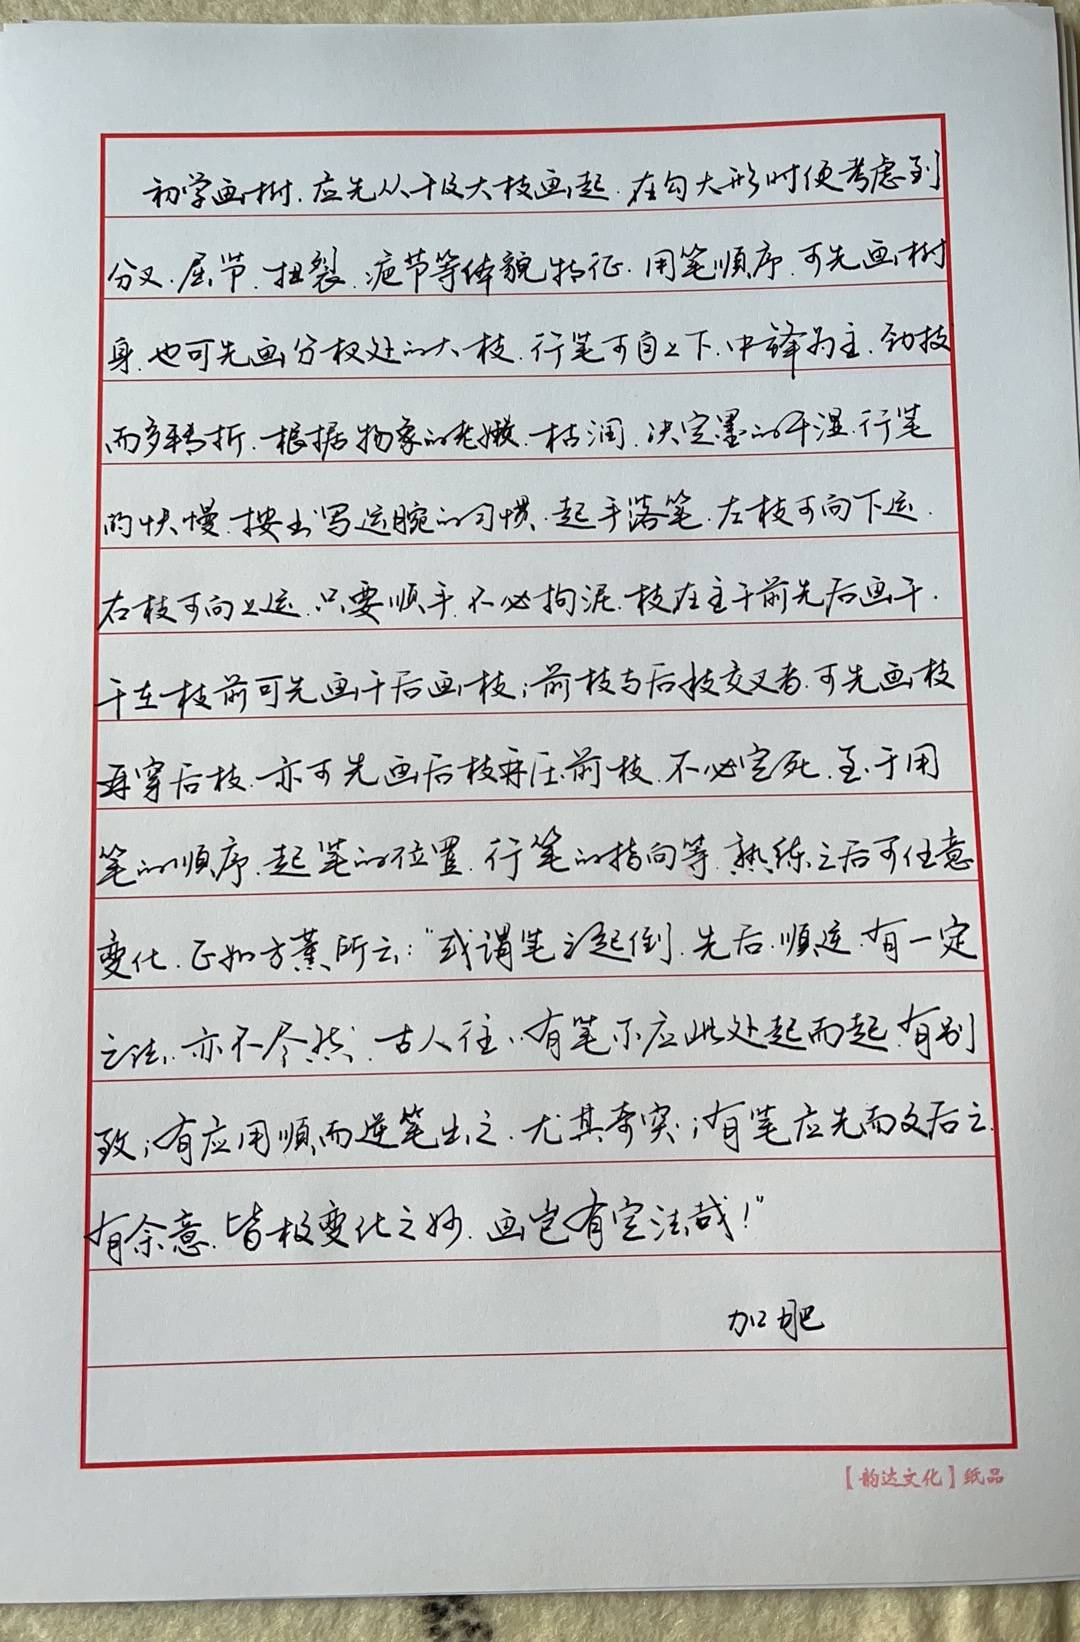 初学画树.应先从干及大枝画起.在勾大形时便考虑到
分叉.屈节.扭裂.疤节等体貌特征.用笔顺序.可先画树
身.也可先画分杈处的大枝.行笔可自上下.中锋为主.劲枝
而多转折.根据物象的老嫩.枯润.决定墨的干湿.行笔
的快慢.按书写运腕的习惯.起手落笔.左枝可向下运.
右枝可向上运.只要顺手.不必拘泥.枝在主干前先后画干.
干在枝前可先画干后画枝;前枝与后枝交叉者.可先画枝
再穿后枝.亦可先画后枝再压前枝.不必定死.至于用
笔的顺序.起笔的位置.行笔的指向等.熟练之后可任意
变化.正如方薰所云:“或谓笔之起倒.先后.顺逆.有一定
之法.亦不尽然.古人往、有笔不应此处起而起.有别
致;有应用顺而逆笔出之.尤其奇突;有笔应先而反后之.
有余意.皆极变化之妙.画岂有定法哉!”
加肥
【韵达文化】纸品